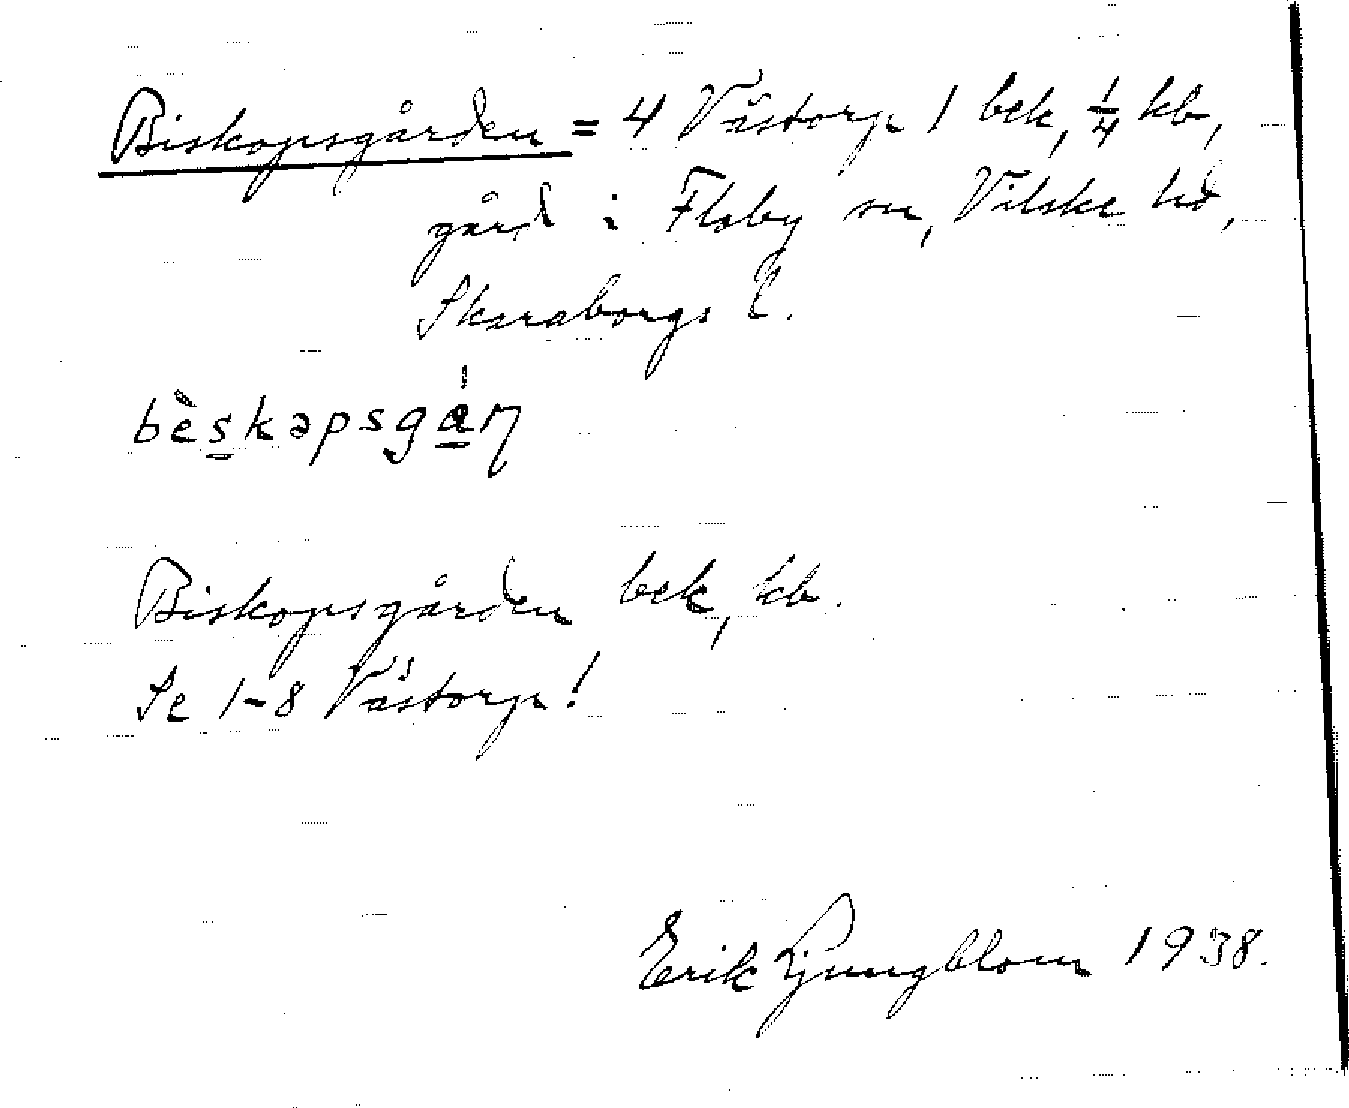 Biskopsgården = 4 Västorp 1 bek, 1/4 kb,
gård i Floby sn, Vilske hd,
Skaraborgs l.
bèskapsgáɳ
Biskopsgården bek, kb.
Se 1-8 Västorp!
Erik Ljungblom 1938.